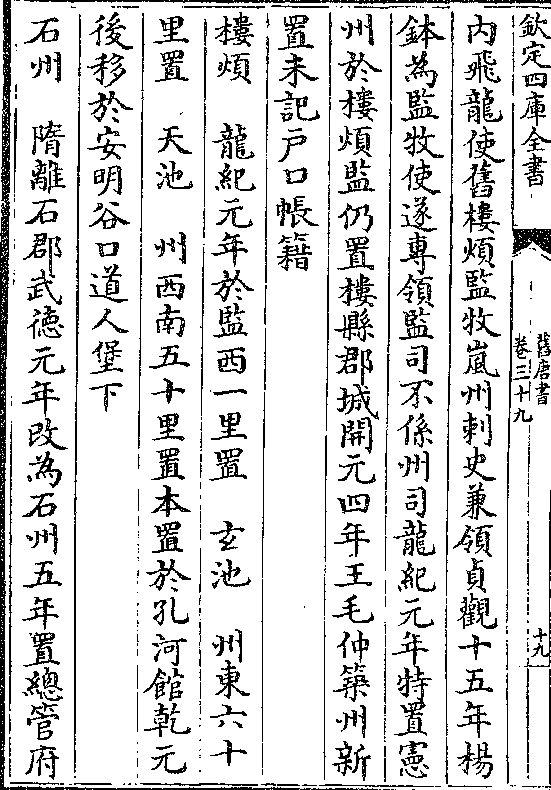 欽定四庫全書
舊唐書
卷三十九
十九
內飛龍使舊樓煩監牧嵐州刺史兼領貞觀十五年楊
鉢為監牧使遂專領監司不係州司龍紀元年特置憲
州於樓煩監仍置樓縣郡城開元四年王毛仲築州新
置未記戶口帳籍
樓煩 龍紀元年於監西一里置 玄池 州東六十
里置 天池 州西南五十里置本置於孔河館乾元
後移於安明谷口道人堡下
石州 隋離石郡武德元年改為石州五年置總管府